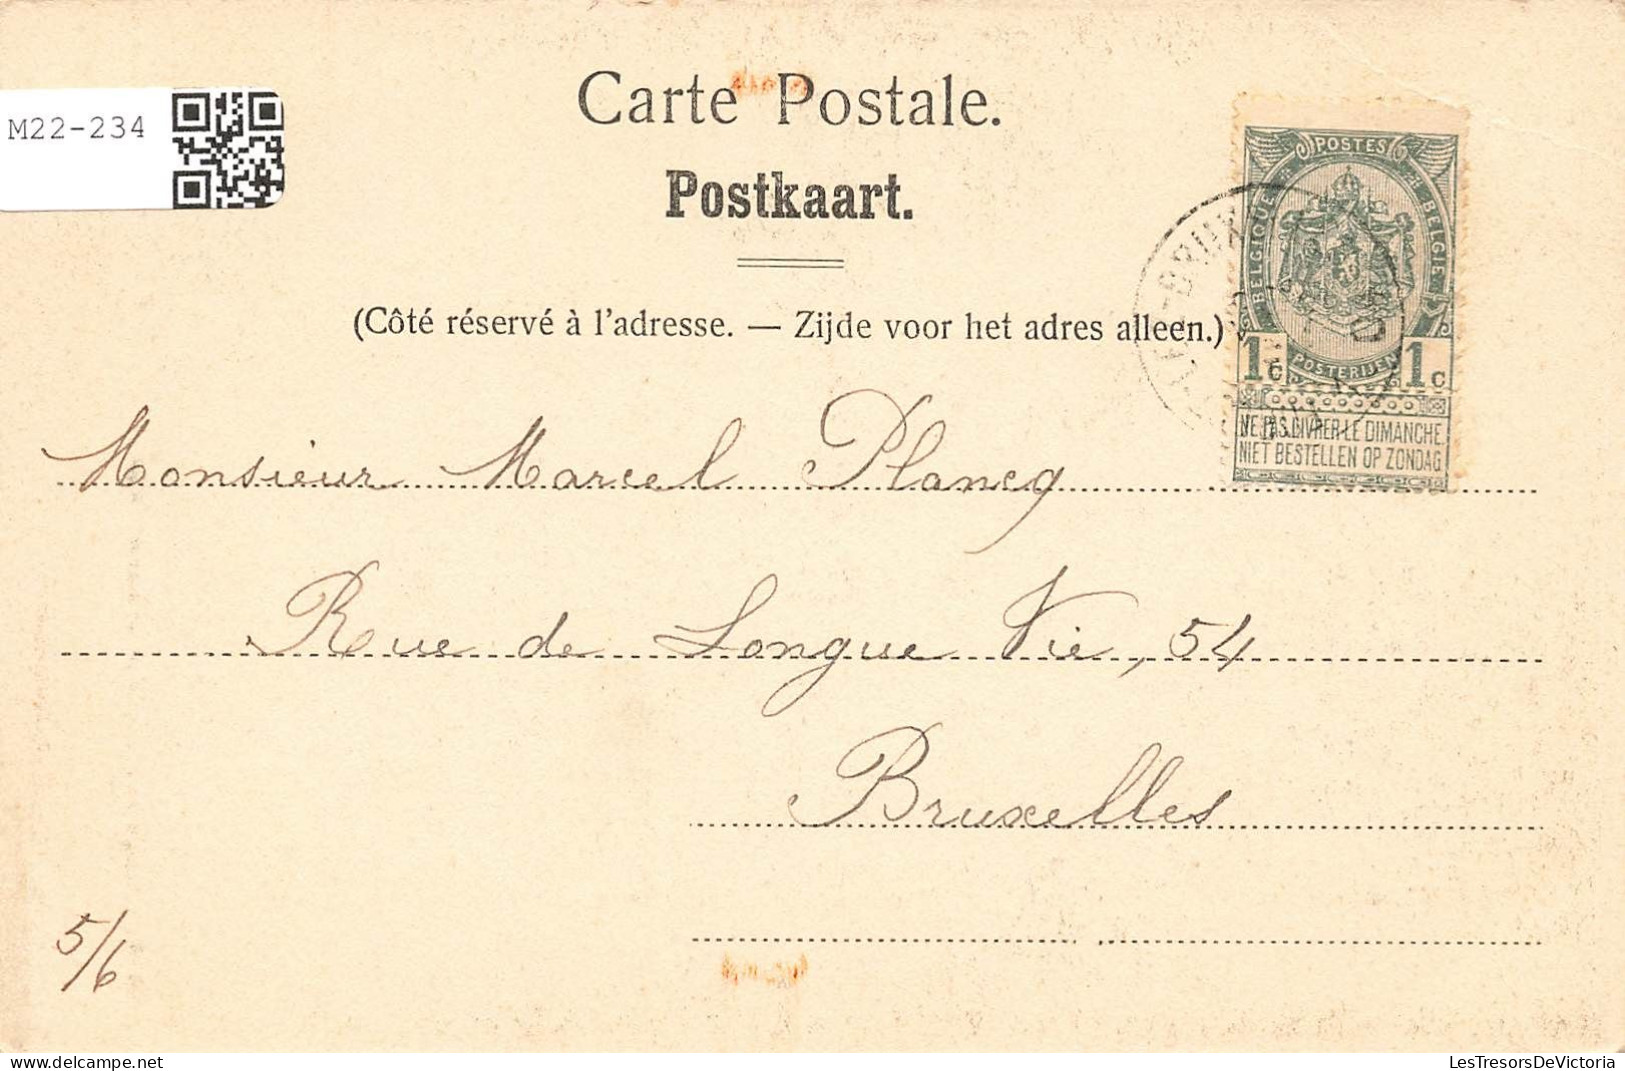 Carte Postale.
M22-234
Postkaart.
(Côté réservé à l'adresse. — Zijde voor het adres alleen.)
POSTES
BELGIQUE
BELGIË
POSTERIJEN
1c 1c
NE PAS LIVRER LE DIMANCHE.
NIET BESTELLEN OP ZONDAG
Monsieur Marcel Plancq
Rue de Longue Vie, 54
Bruxelles
5/6
LesTresorsDeVictoria